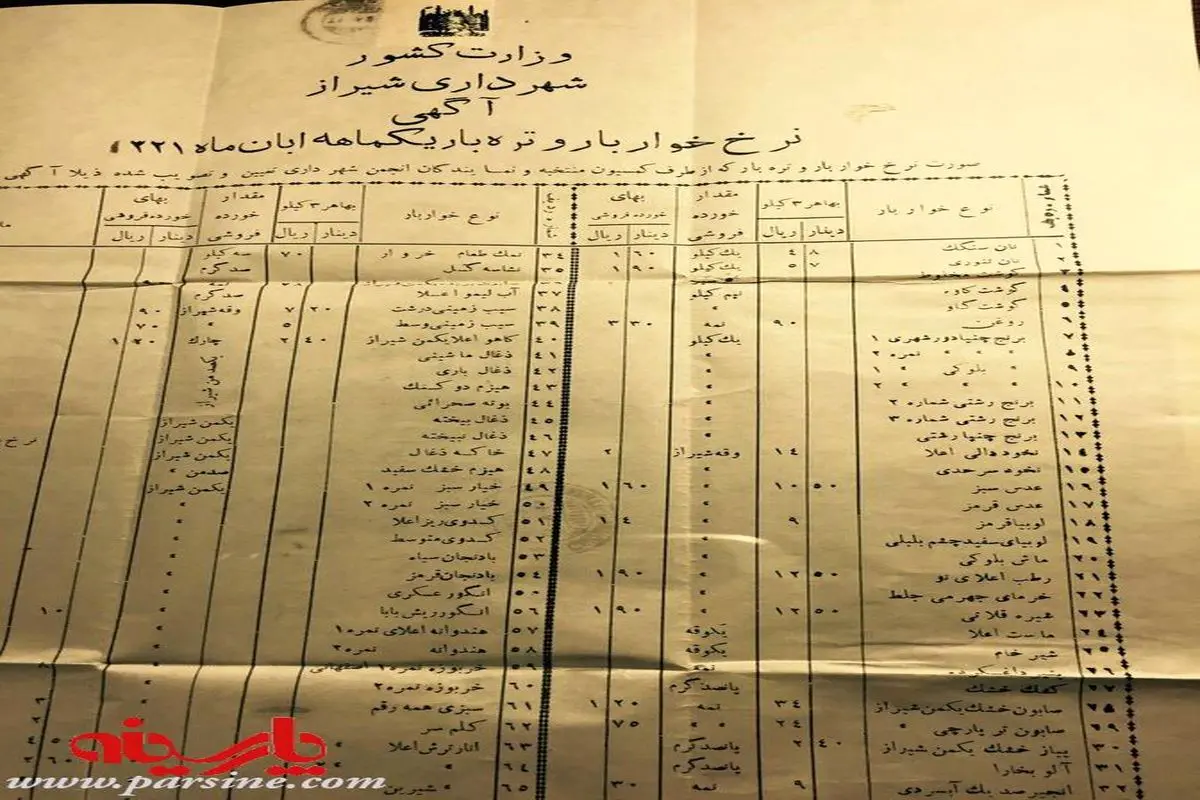 وزارت کشور
شهرداری شیراز
آگهی
نرخ خواربار و تره بار یکماهه ابان ماه ۱۳۲۱
صورت نرخ خواربار و تره بار که از طرف کمسیون منتخبه و نمایندگان انجمن شهرداری تعیین و تصویب شده ذیلا آگهی
نوع خواربار بهاهر ۳ کیلو مقدار خورده فروشی بهای خورده فروشی
دینار ریال دینار ریال
۱ نان سنگک ۸ ۴ یک کیلو ۶۰ ۱
۲ نان تنوری ۷ ۵ یک کیلو ۹۰ ۱
۳ گوشت مخلوط
۴ گوشت گاوه نیم کیلو
۵ گوشت گاو »
۶ روغن ۹۰ نمه ۳۰ ۳
۷ برنج چنپادورشهری ۱ یک کیلو
۸ » » نمره ۲ »
۹ » بلوکی » ۱ »
۱۰ » » » ۲ »
۱۱ برنج رشتی شماره ۲ »
۱۲ برنج رشتی شماره ۳ »
۱۳ برنج چنپا رشتی »
۱۴ نخود دالی اعلا ۱۴ وقه شیراز ۲
۱۵ نخود سرحدی »
۱۶ عدس سبز ۵۰ ۱۰ » ۶۰ ۱
۱۷ عدس قرمز »
۱۸ لوبیا قرمز ۹ » ۱۴
۱۹ لوبیای سفید چشم بلبلی »
۲۰ ماش بلوکی »
۲۱ رطب اعلای نو ۵۰ ۱۲ » ۹۰ ۱
۲۲ خرمای جهرمی جلط »
۲۳ شیره قلاتی ۵۰ ۱۲ » ۹۰ ۱
۲۴ ماست اعلا یکوقه
۲۵ شیر خام یکوقه
۲۶ نمه
۲۷ کشک خشک پانصد گرم
۲۸ صابون خشک یکمن شیراز ۳۴ نمه ۲۰ ۱
۲۹ صابون تر پارچی » ۲۴ » » ۷۵
۳۰ پیاز خشک یکمن شیراز ۴۰ ۲ پانصد گرم
۳۱ آلو بخارا پانصد گرم
۳۲ انجیر صد یک آبسردی ۹ نمه ۳۰
نوع خواربار بهاهر ۳ کیلو مقدار خورده فروشی بهای خورده فروشی
دینار ریال دینار ریال
۳۴ نمک طعام خروار ۷۰ سه کیلو
۳۵ نشاسه گندل صد گرم
۳۷ آب لیمو اعلا صد گرم
۳۸ سیب زمینی درشت ۲۰ ۷ وقه شیراز ۹۰
۳۹ سیب زمینی وسط ۵ » ۷۰
۴۰ کاهو اعلا یکمن شیراز ۴۰ ۲ چارک ۲۰ ۱
۴۱ ذغال ماشینی
۴۲ ذغال باری
۴۳ هیزم دو کسنک
۴۴ بوته صحرائی
۴۵ ذغال بیخته یکمن شیراز
۴۶ ذغال نبیخته یکمن شیراز
۴۷ خاکه ذغال یکمن شیراز
۴۸ هیزم خشک سفید صدمن »
۴۹ خیار سبز نمره ۱ یکمن شیراز
۵۰ خیار سبز نمره ۲ »
۵۱ کدوی ریز اعلا »
۵۲ کدوی متوسط »
۵۳ بادنجان سیاه »
۵۴ بادنجان قرمز »
۵۵ انگور عسکری »
۵۶ انگور ریش بابا » ۱۰
۵۷ هندوانه اعلای نمره ۱ »
۵۸ هندوانه نمره ۲ »
۵۹ خربوزه نمره ۱ اصفهانی ۸
۶۰ خربوزه نمره ۲ »
۶۱ سبزی همه رقم ۳
۶۲ کلم سر ۲
۶۳ انار ترش اعلا »
۶۴ » »
۶۵ » شیرین »
پارسینه
www.parsine.com